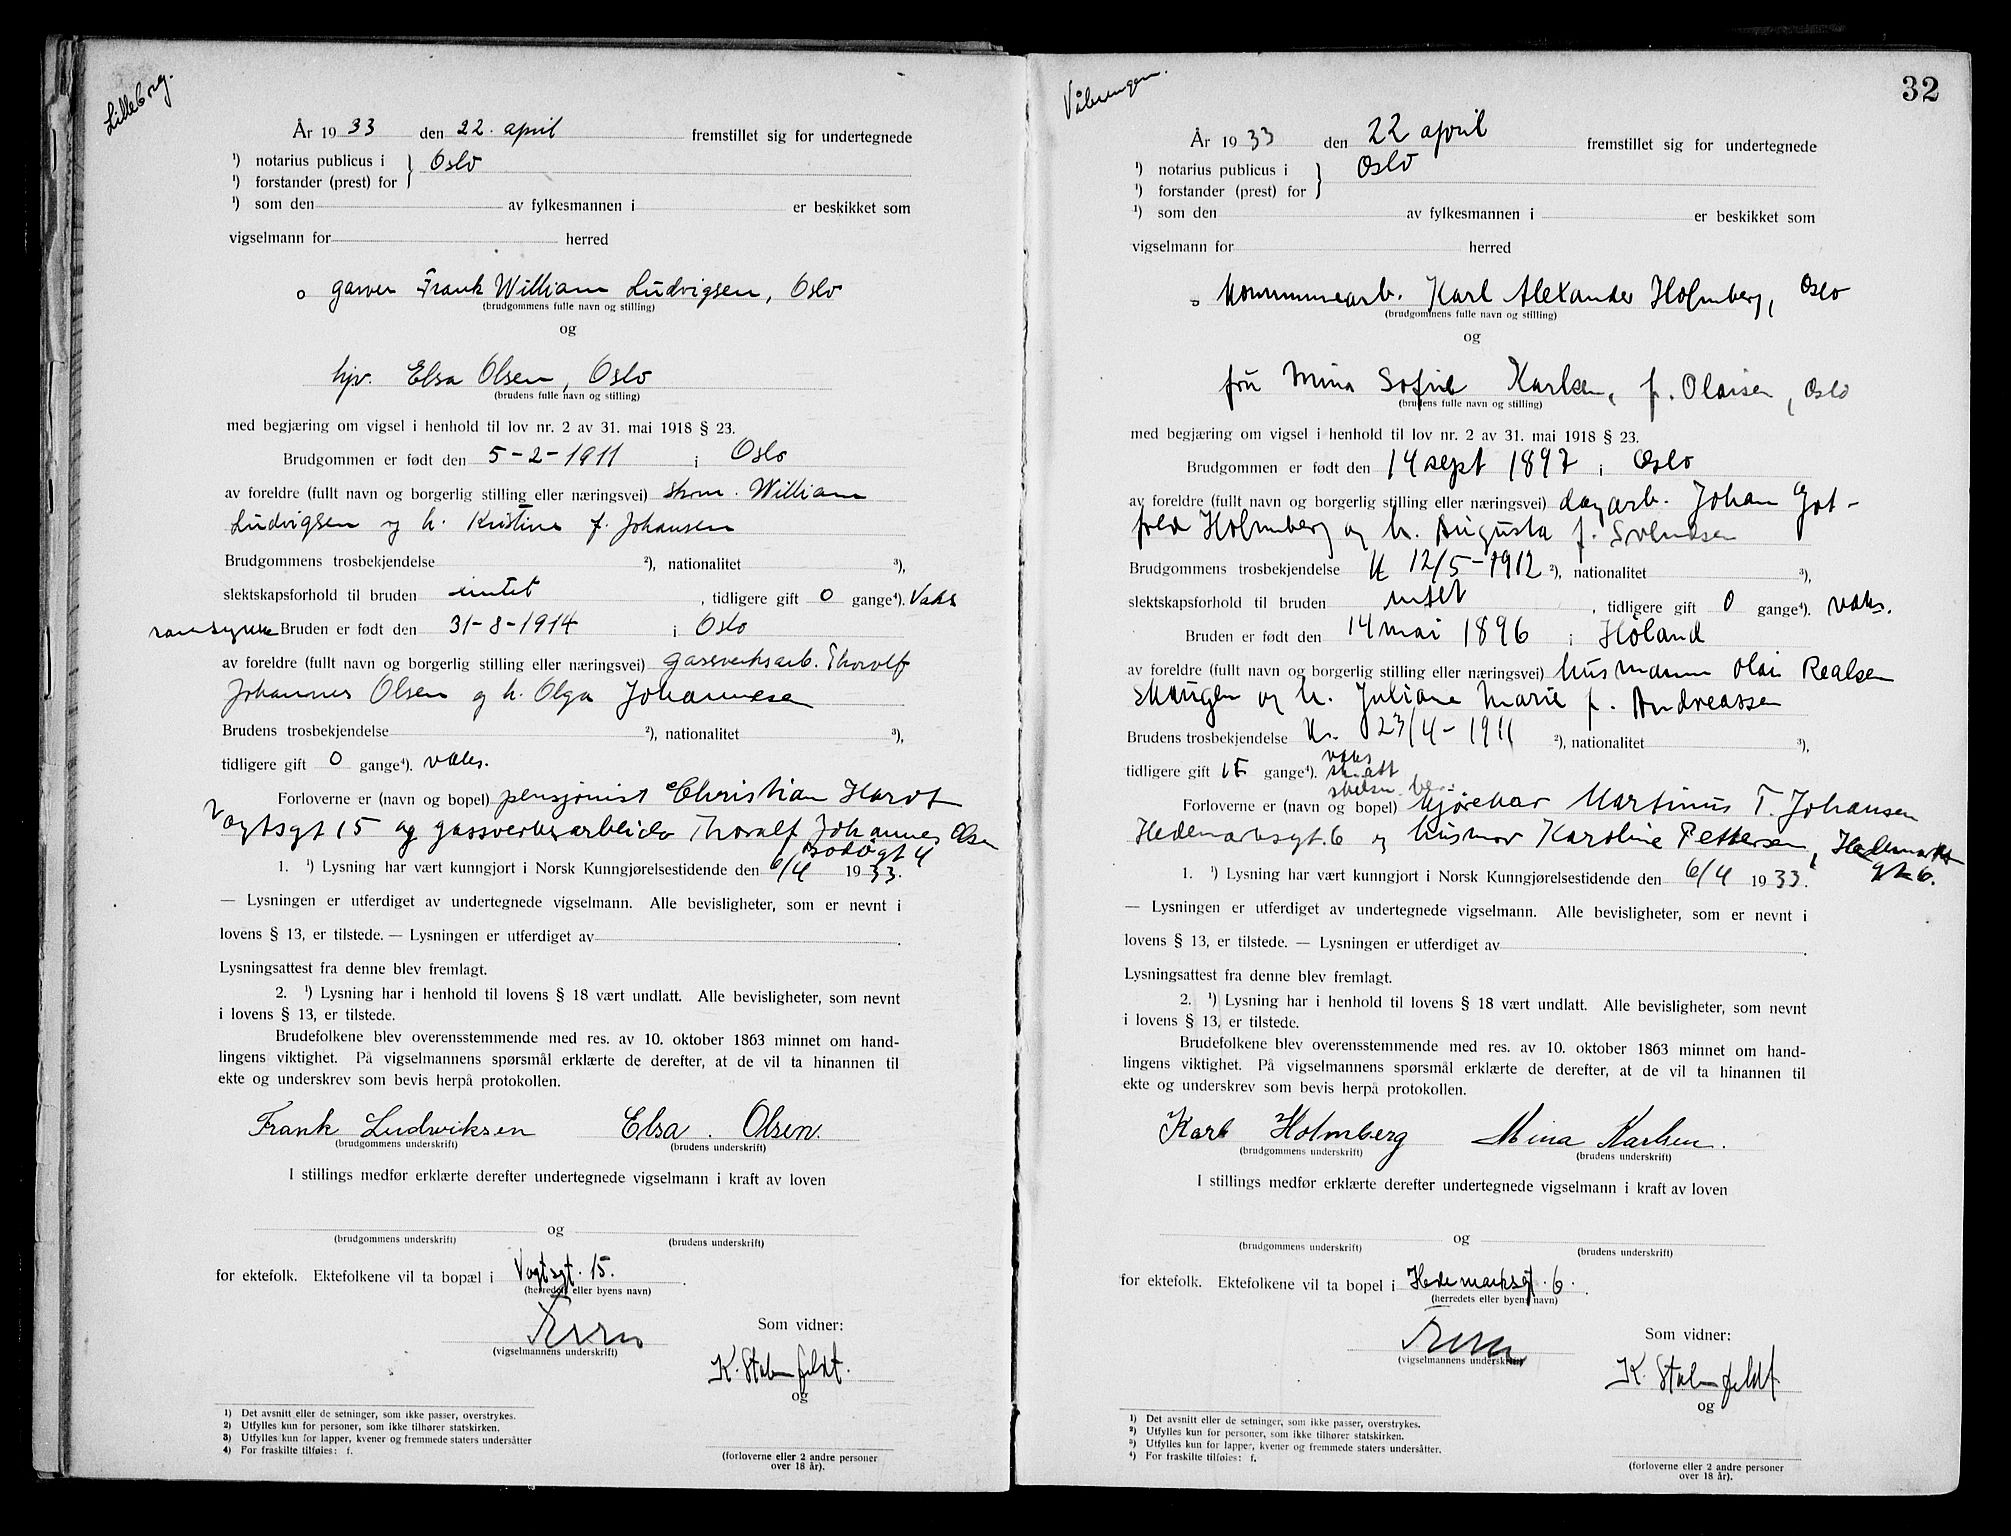 Lilleborg.
År 1933 den 22. april fremstillet sig for undertegnede
¹) notarius publicus i } Oslo
¹) forstander (prest) for
¹) som den av fylkesmannen i er beskikket som
vigselmann for herred
o garver Frank William Ludvigsen, Oslo
(brudgommens fulle navn og stilling)
og
hjv. Elsa Olsen, Oslo
(brudens fulle navn og stilling)
med begjæring om vigsel i henhold til lov nr. 2 av 31. mai 1918 § 23.
Brudgommen er født den 5-2-1911 i Oslo
av foreldre (fullt navn og borgerlig stilling eller næringsvei) skom. William
Ludvigsen og h. Kristine f. Johansen
Brudgommens trosbekjendelse ²), nationalitet ³),
slektskapsforhold til bruden intet, tidligere gift 0 gange⁴). Vaks
Bruden er født den 31-8-1914 i Oslo
av foreldre (fullt navn og borgerlig stilling eller næringsvei) gassverksarb. Thorolf
Johannes Olsen og h. Olga Johannesen
Brudens trosbekjendelse ²), nationalitet ³),
tidligere gift 0 gange⁴). vaks.
Forloverne er (navn og bopel) pensjonist Christian Hardt
Vogtsgt 15 og gassverksarbeider Thoralf Johannes Olsen
Bodøgt 4
1. ¹) Lysning har vært kunngjort i Norsk Kunngjørelsestidende den 6/4 1933.
— Lysningen er utferdiget av undertegnede vigselmann. Alle bevisligheter, som er nevnt i
lovens § 13, er tilstede. — Lysningen er utferdiget av .
Lysningsattest fra denne blev fremlagt.
2. ¹) Lysning har i henhold til lovens § 18 vært undlatt. Alle bevisligheter, som nevnt
i lovens § 13, er tilstede.
Brudefolkene blev overensstemmende med res. av 10. oktober 1863 minnet om hand-
lingens viktighet. På vigselmannens spørsmål erklærte de derefter, at de vil ta hinannen til
ekte og underskrev som bevis herpå protokollen.
Frank Ludviksen Elsa. Olsen.
(brudgommens underskrift) (brudens underskrift)
I stillings medfør erklærte derefter undertegnede vigselmann i kraft av loven
og
(brudgommens underskrift) (brudens underskrift)
for ektefolk. Ektefolkene vil ta bopæl i Vogtsgt. 15.
(herredets eller byens navn)
Som vidner:
(vigselmannens underskrift)
K. Stalenfeldt.
og
¹) Det avsnitt eller de setninger, som ikke passer, overstrykes.
²) Utfylles kun for personer, som ikke tilhører statskirken.
³) Utfylles kun for lapper, kvener og fremmede staters undersåtter
⁴) For fraskilte tilføies: f.
(forloverne eller 2 andre personer
over 18 år).
32
Vålerengen.
År 1933 den 22 april fremstillet sig for undertegnede
¹) notarius publicus i } Oslo
¹) forstander (prest) for
¹) som den av fylkesmannen i er beskikket som
vigselmann for herred
o kommunearb. Karl Alexander Holmberg, Oslo
(brudgommens fulle navn og stilling)
og
fru Mina Sofie Karlsen, f. Olaisen, Oslo
(brudens fulle navn og stilling)
med begjæring om vigsel i henhold til lov nr. 2 av 31. mai 1918 § 23.
Brudgommen er født den 14 sept 1897 i Oslo
av foreldre (fullt navn og borgerlig stilling eller næringsvei) dagarb. Johan Got-
fred Holmberg og h. Augusta f. Svendsen
Brudgommens trosbekjendelse K 12/5-1912 ²), nationalitet ³),
slektskapsforhold til bruden intet, tidligere gift 0 gange⁴). vaks.
Bruden er født den 14 mai 1896 i Høland
av foreldre (fullt navn og borgerlig stilling eller næringsvei) husmann Olai Realsen
Skaugen og h. Juliane Marie f. Andreassen
Brudens trosbekjendelse K. 23/4-1911 ²), nationalitet ³),
tidligere gift 1f gange⁴). vaks
skift
Forloverne er (navn og bopel) kjørekar Martinus T. Johansen
Hedemarksgt. 6 og husmor Karoline Pettersen, Hedemarks
gt. 6.
1. ¹) Lysning har vært kunngjort i Norsk Kunngjørelsestidende den 6/4 1933.
— Lysningen er utferdiget av undertegnede vigselmann. Alle bevisligheter, som er nevnt i
lovens § 13, er tilstede. — Lysningen er utferdiget av .
Lysningsattest fra denne blev fremlagt.
2. ¹) Lysning har i henhold til lovens § 18 vært undlatt. Alle bevisligheter, som nevnt
i lovens § 13, er tilstede.
Brudefolkene blev overensstemmende med res. av 10. oktober 1863 minnet om hand-
lingens viktighet. På vigselmannens spørsmål erklærte de derefter, at de vil ta hinannen til
ekte og underskrev som bevis herpå protokollen.
Karl Holmberg Mina Karlsen.
(brudgommens underskrift) (brudens underskrift)
I stillings medfør erklærte derefter undertegnede vigselmann i kraft av loven
og
(brudgommens underskrift) (brudens underskrift)
for ektefolk. Ektefolkene vil ta bopel i Hedemarksgt. 6.
(herredets eller byens navn)
Som vidner:
(vigselmannens underskrift)
K. Stalenfeldt
og
¹) Det avsnitt eller de setninger, som ikke passer, overstrykes.
²) Utfylles kun for personer, som ikke tilhører statskirken.
³) Utfylles kun for lapper, kvener og fremmede staters undersåtter.
⁴) For fraskilte tilføies: f.
(forloverne eller 2 andre personer
over 18 år).